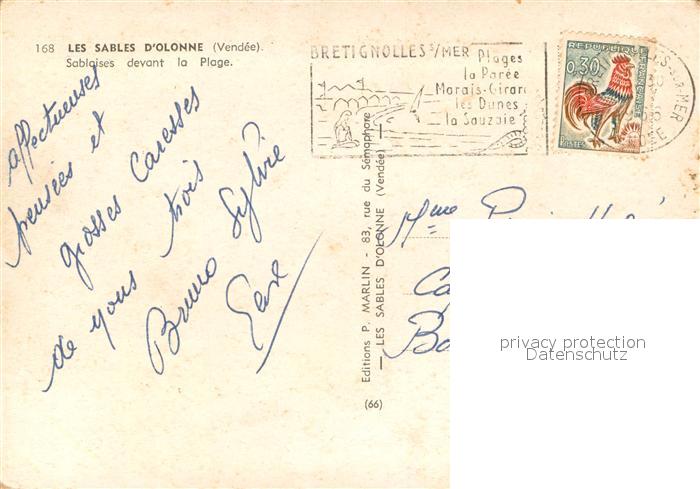 168 LES SABLES D'OLONNE (Vendée).
Sablaises devant la Plage.
BRETIGNOLLES S/MER
Plages
la Parée
Marais-Girard
les Dunes
la Sauzaie
REPUBLIQUE FRANÇAISE
0,30
POSTES
S-SUR-MER
affectueuses
pensées et
grosses caresses
de vous trois
Bruno Sylvie
Editions P. MARLIN - 83, rue du Sémaphore
— LES SABLES D'OLONNE (Vendée) —
(66)
Mme
privacy protection
Datenschutz